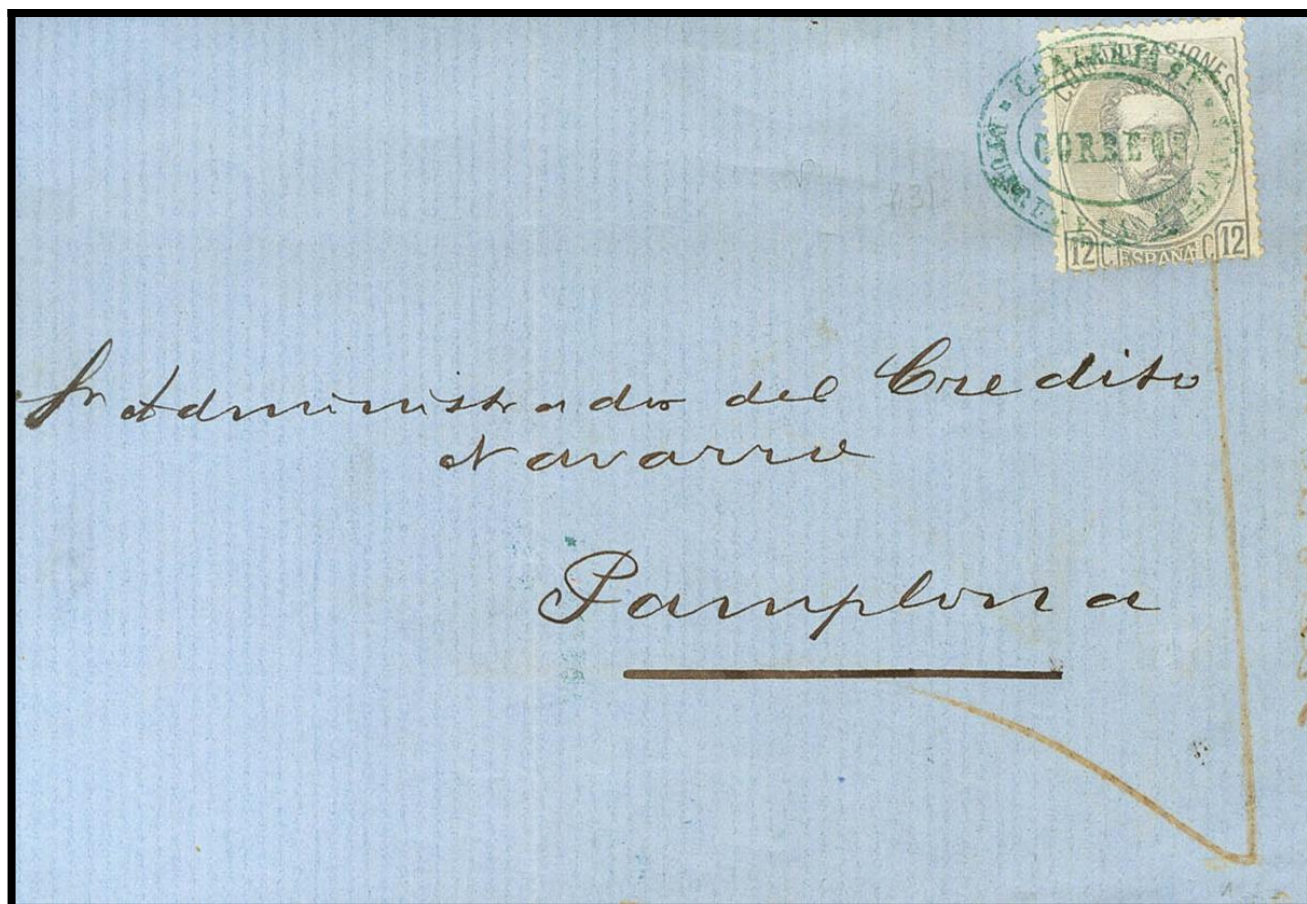 COMUNICACIONES
CARTERIA DE
CORREOS
12 C. ESPAÑA C 12
Sr Administrador del Credito
Navarro
Pamplona